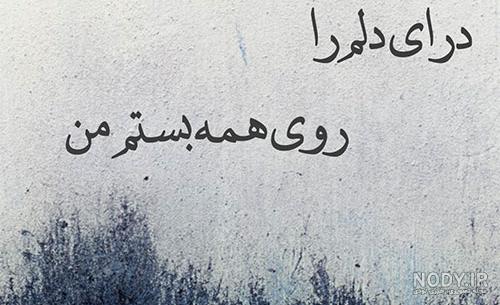 در ای دلم را
روی همه بستم من
NODY.IR